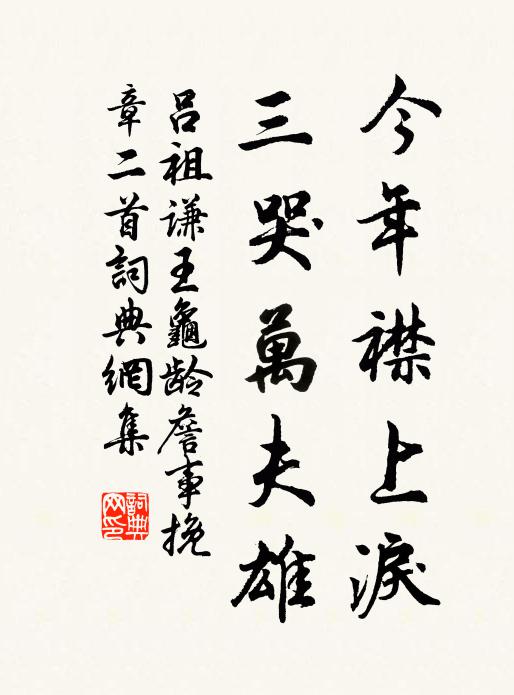 今年襟上淚
三哭萬夫雄
呂祖謙王龜龄詹事挽
章二首詞典網集
詞典網印